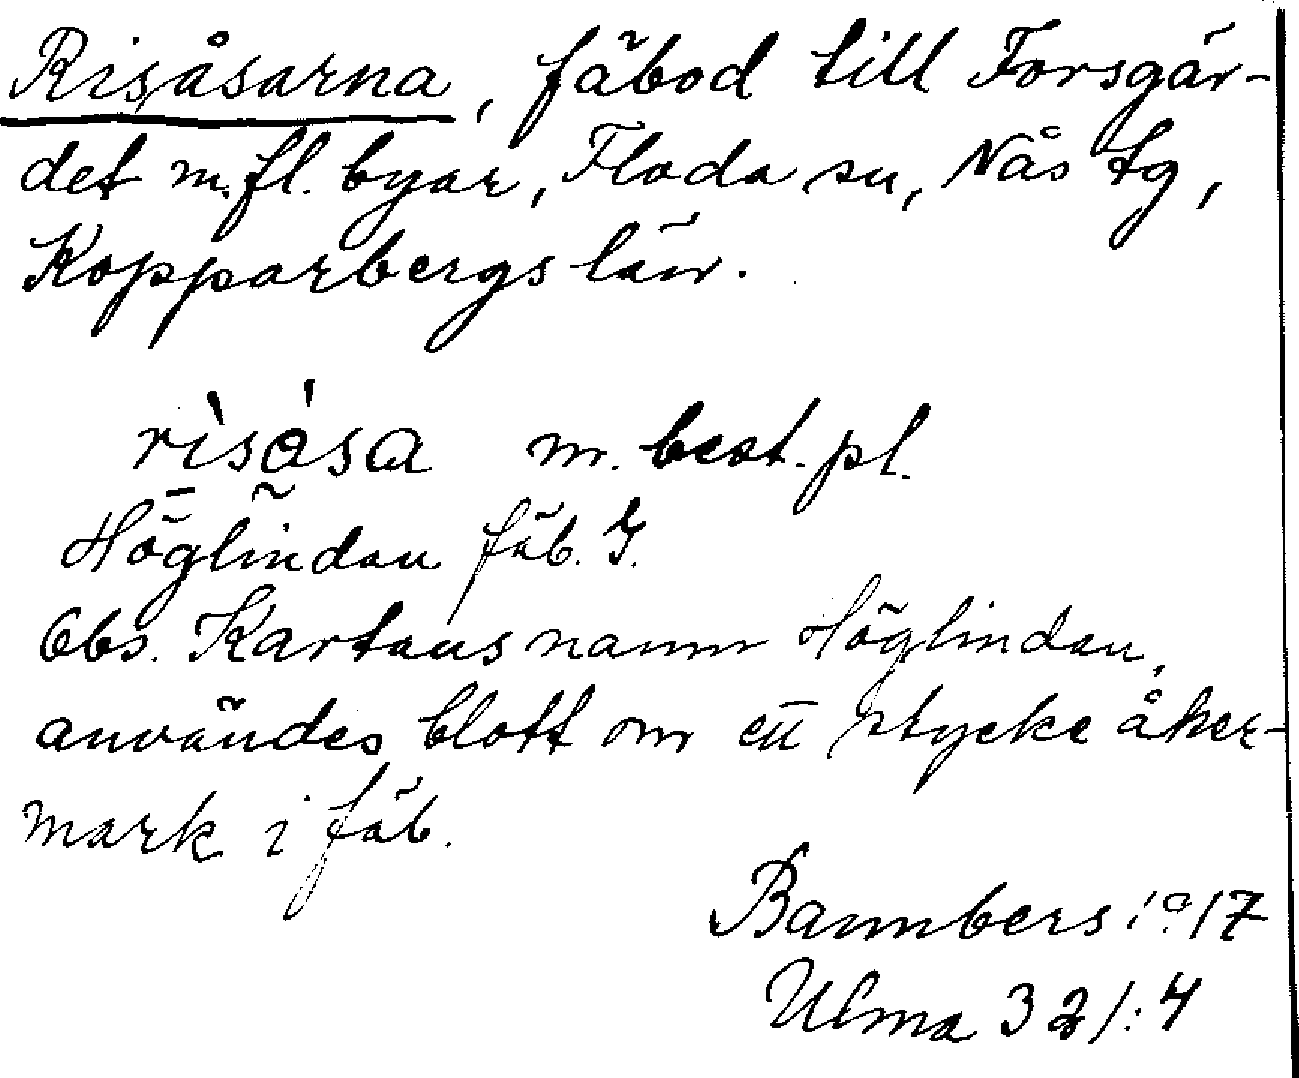 Risåsarna, fäbod till Forsgär-
det m. fl. byar, Floda sn, Nås tg,
Kopparbergs län.
rìsåsa m. best. pl.
Höglindan fäb. G.
Obs. Kartans namn Höglindan,
användes blott om ett stycke åker-
mark i fäb.
Bannbers 1917
Ulma 321:4